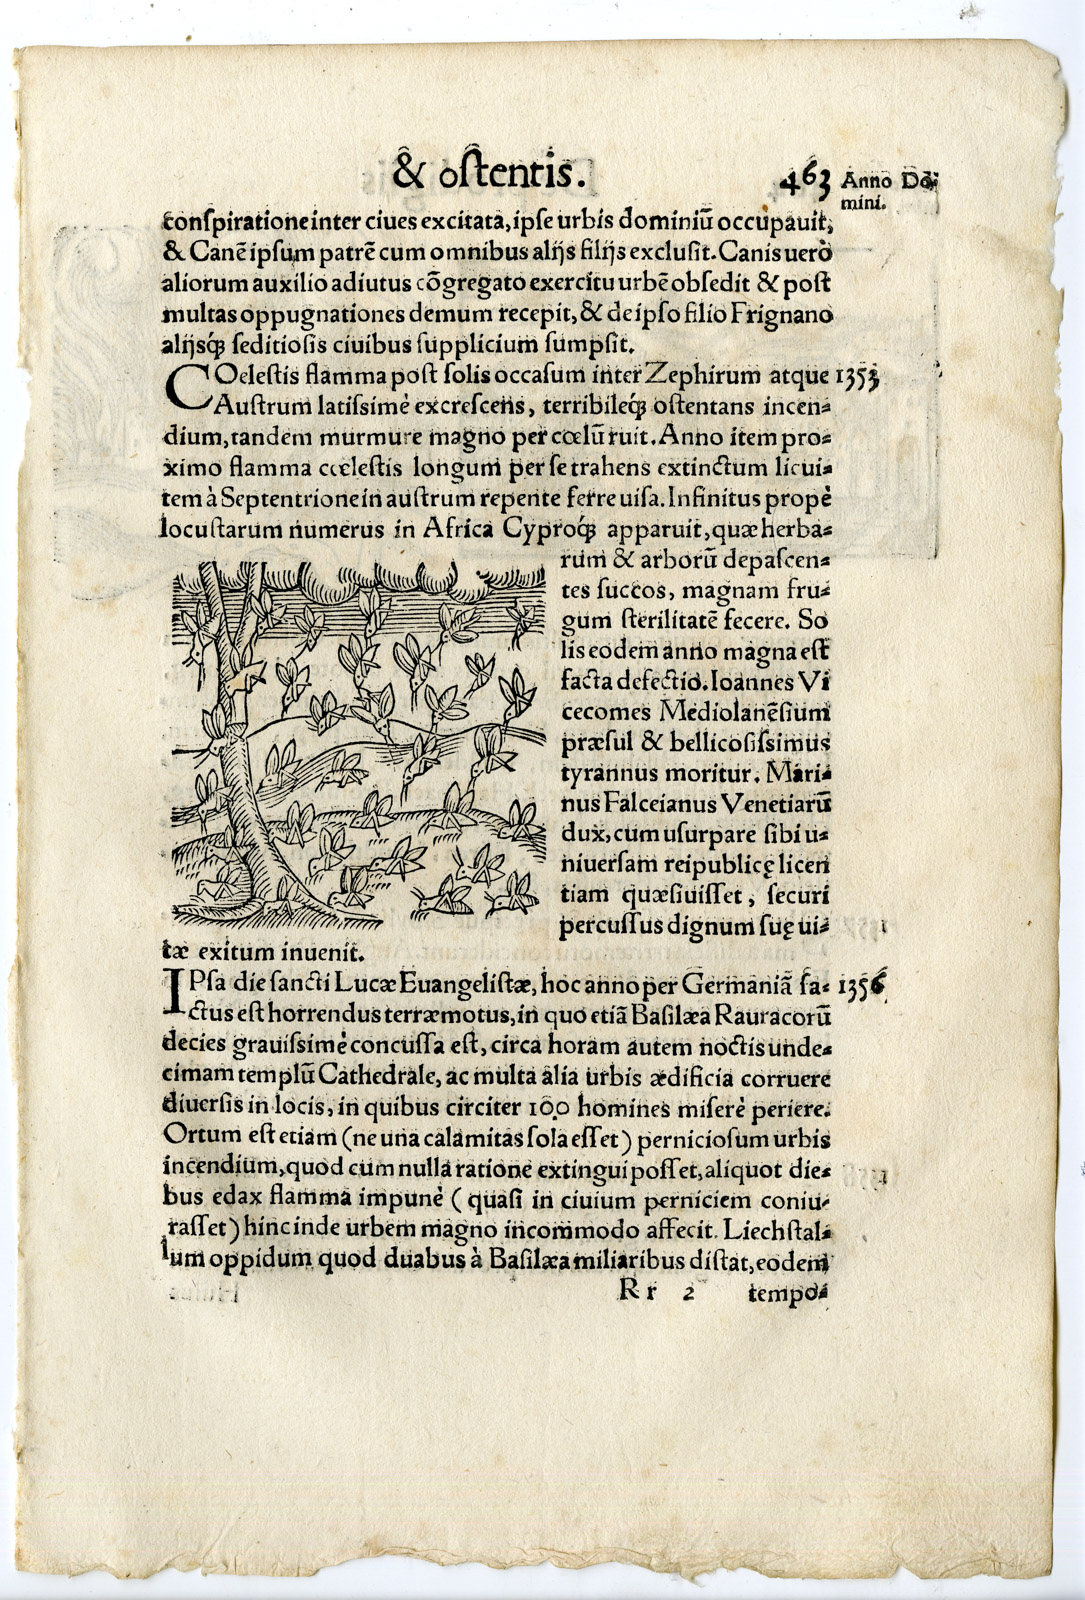 & ostentis.
463 Anno Do⸗
mini.
conspiratione inter ciues excitata, ipse urbis dominiū occupauit,
& Canē ipsum patrē cum omnibus alijs filijs exclusit. Canis uerò
aliorum auxilio adiutus cōgregato exercitu urbē obsedit & post
multas oppugnationes demum recepit, & de ipso filio Frignano
alijsq́ꝫ seditiosis ciuibus supplicium sumpsit.
COelestis flamma post solis occasum inter Zephirum atque 1353
Austrum latissimè excrescens, terribileq́ꝫ ostentans incen⸗
dium, tandem murmure magno per cœlū ruit. Anno item pro⸗
ximo flamma cœlestis longum per se trahens extinctum licui⸗
tem à Septentrione in austrum repente ferre uisa. Infinitus propè
locustarum numerus in Africa Cyproq́ꝫ apparuit, quæ herba⸗
rum & arborū depascen⸗
tes succos, magnam fru⸗
gum sterilitatē fecere. So
lis eodem anno magna est
facta defectio. Ioannes Vi
cecomes Mediolanēsium
præsul & bellicosissimus
tyrannus moritur. Mari⸗
nus Falceianus Venetiarū
dux, cum usurpare sibi u⸗
niuersam reipublicę licen
tiam quæsiuisset, securi
percussus dignum suę ui⸗
tæ exitum inuenit.
IPsa die sancti Lucæ Euangelistæ, hoc anno per Germaniā fa⸗ 1356
ctus est horrendus terræmotus, in quo etiā Basilæa Rauracorū
decies grauissimè concussa est, circa horam autem noctis unde⸗
cimam templū Cathedrale, ac multa alia urbis ædificia corruere
diuersis in locis, in quibus circiter 100 homines miserè periere.
Ortum est etiam (ne una calamitas sola esset) perniciosum urbis
incendium, quod cum nulla ratione extingui posset, aliquot die⸗
bus edax flamma impunè (quasi in ciuium perniciem coniu⸗
rasset) hinc inde urbem magno incommodo affecit. Liechstal⸗
lum oppidum quod duabus à Basilæa miliaribus distat, eodem
Rr 2 tempo⸗